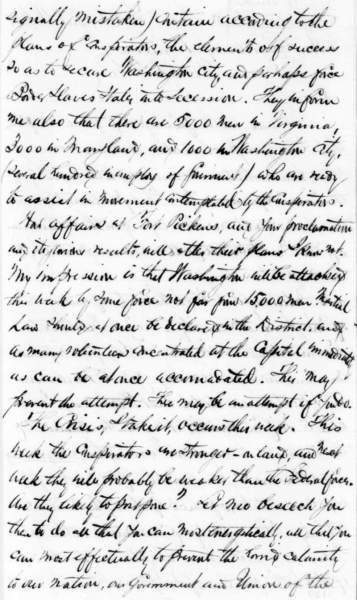 signally mistaken, contain according to the
plans of Conspirators, the elements of success
so as to secure Washington City, and perhaps force
Border Slaves States into secession. They inform
me also that there are 5000 men in Virginia,
3000 in Maryland, and 1000 in Washington City,
(several hundred in employ of Government) who are ready
to assist in movement contemplated by the Conspirators.
How affairs at Fort Pickens, and your proclamation
and its glorious results, will alter their plans I know not.
My impression is that Washington will be attacked
this week by some force not far from 15,000 men. Martial
Law should at once be declared in the District, and
as many volunteers concentrated at the Capitol immediately
as can be at once accommodated. This may
prevent the attempt. There may be an attempt if
The Crisis, I take it, occurs this week. This
week the Conspirators are stronger on land, and next
week they will probably be weaker than the Federal forces.
Are they likely to postpone? Let me beseech you
then to do all that you can most energetically, all that you
can most effectually to prevent the torrid calamity
to our nation, our Government and Union of the